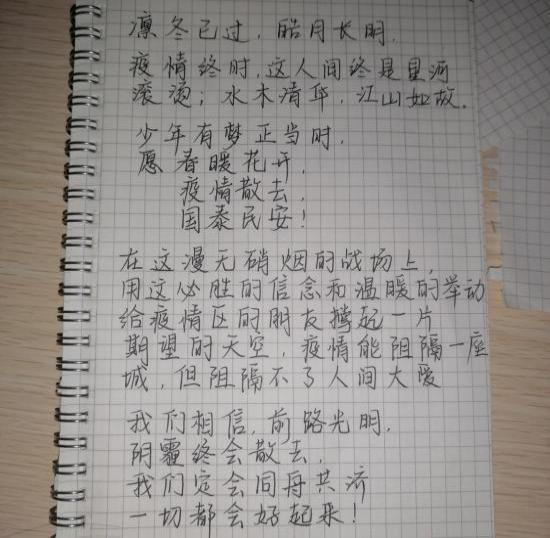 凛冬已过，皓月长明，
疫情终时，这人间终是星河
滚烫；水木清华，江山如故。
少年有梦正当时，
愿春暖花开，
疫情散去，
国泰民安！
在这漫无硝烟的战场上，
用这必胜的信念和温暖的举动
给疫情区的朋友撑起一片
期望的天空，疫情能阻隔一座
城，但阻隔不了人间大爱
我们相信，前路光明，
阴霾终会散去，
我们定会同舟共济
一切都会好起来！